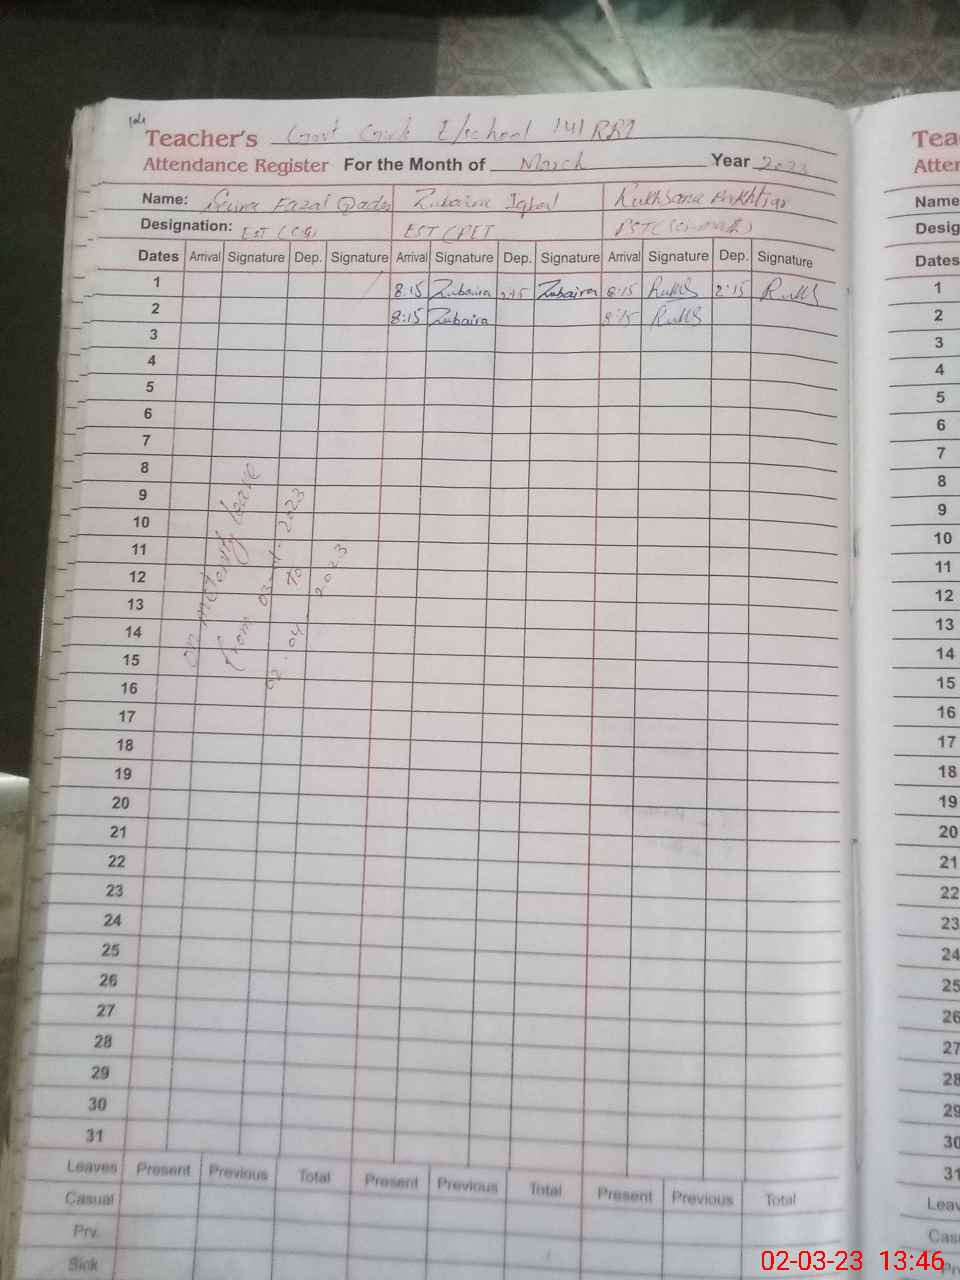 Teacher's Govt Girls E/School 141 RB?
Attendance Register For the Month of March Year 2023
Name: Fazal Qader Zubaira Iqbal Rukhsana
Designation: EST (C.G) EST (PET
Dates Arrival Signature Dep. Signature Arrival Signature Dep. Signature Arrival Signature Dep. Signature
1 8:15 Zubaira 2:15 Zubaira 8:15 Rukhs 2:15 Rukhs
2 8:15 Zubaira 8:15 Rukhs
3
4
5
6
7
8
9
10
11
12
13
14
15
16
17
18
19
20
21
22
23
24
25
26
27
28
29
30
31
on leave
from 2023
to
02-04- 2023
Leaves Present Previous Total Present Previous Total Present Previous Total
Casual
Prv.
Sick
Tea
Atten
Name
Desig
Dates
1
2
3
4
5
6
7
8
9
10
11
12
13
14
15
16
17
18
19
20
21
22
23
24
25
26
27
28
29
30
31
Leav
Cas
Pr
02-03-23 13:46